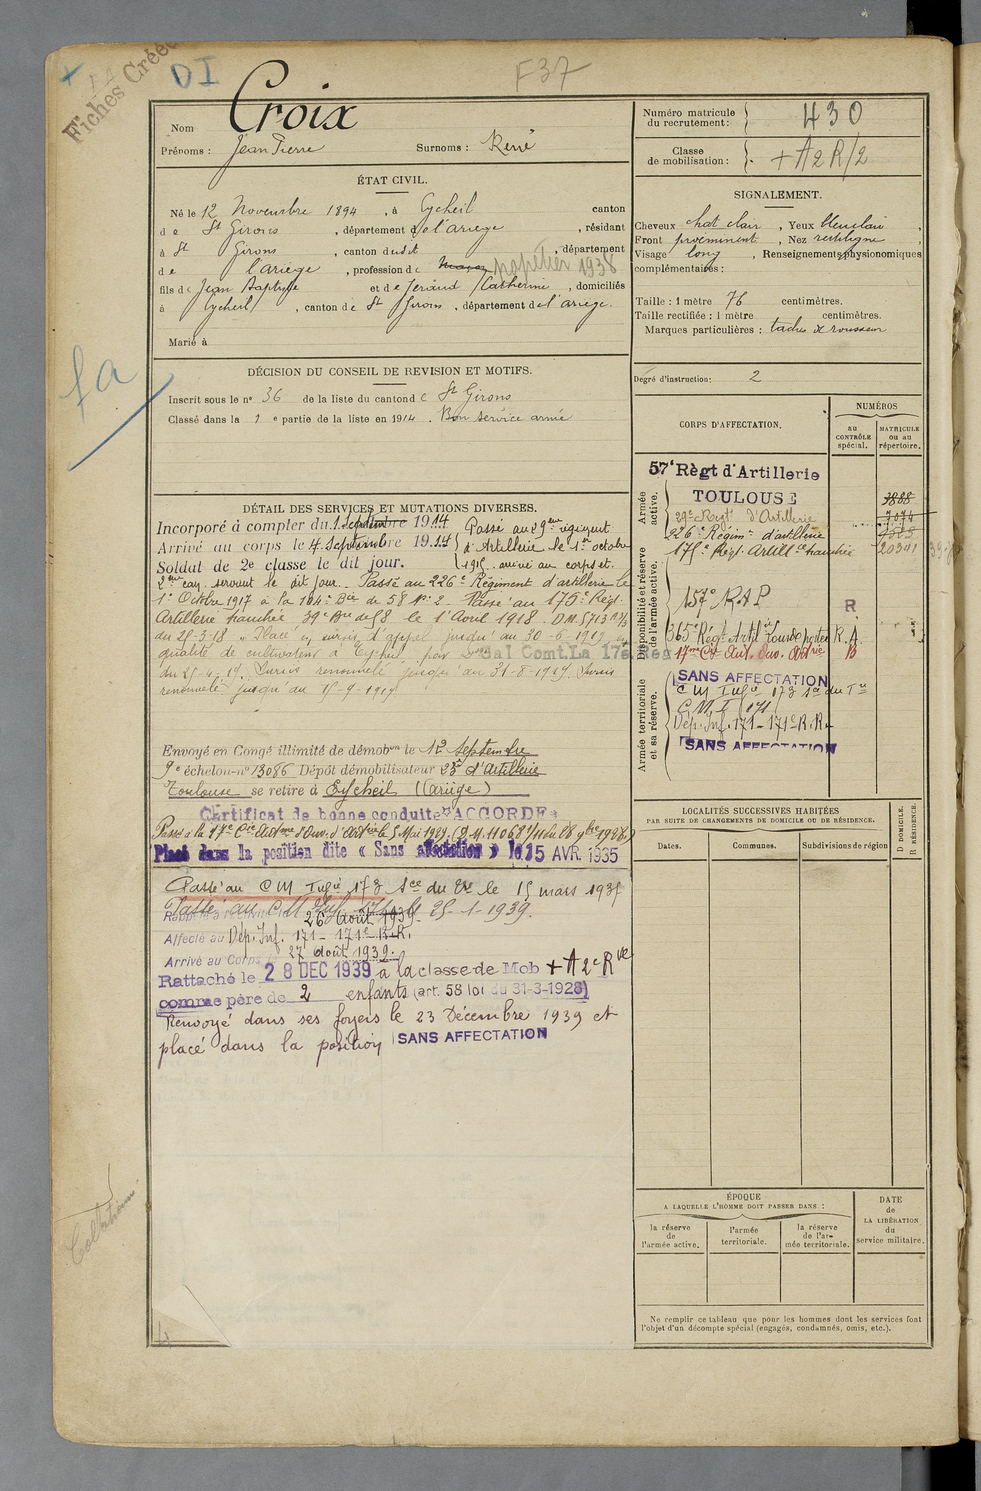 Fiches Créées
DI
F37
Nom Croix
Prénoms : Jean Pierre Surnoms : René
ÉTAT CIVIL.
Né le 12 Novembre 1894 , à Eycheil canton
de St Girons , département de l'Ariège , résidant
à St Girons , canton dudit , département
de l'ariège , profession de papetier 1938
fils de Jean Baptiste et de Jeraud Catherine , domiciliés
à Eycheil , canton de St Girons , département de l'ariège.
Marié à
DÉCISION DU CONSEIL DE REVISION ET MOTIFS.
Inscrit sous le n° 36 de la liste du canton de St Girons
Classé dans la 1 e partie de la liste en 1914 . Bon service armé
DÉTAIL DES SERVICES ET MUTATIONS DIVERSES.
Incorporé à compter du 1 Septembre 1914
Arrivé au corps le 4 Septembre 1914
Soldat de 2e classe le dit jour.
Passé au 29eme régiment
d'Artillerie le 1er octobre
1915 arrivé au corps et
2eme can. servant le dit jour. Passé au 226e Régiment d'artillerie le
1er Octobre 1917 à la 104e Bie de 58 N° 2. Passé au 175e Régt.
Artillerie tranchée 39e Bie de 58 le 1er Avril 1918. D.M. 5713
du 25-3-18. Placé en sursis d'appel jusqu'au 30-6-1919 en
qualité de cultivateur à Eycheil, par Gal Comt. La 17e Reg
du 25-4-19. Sursis renouvelé jusqu'au 31-8-1919. Sursis
renouvelé jusqu'au 15-9-1919
Envoyé en Congé illimité de démobon le 12 septembre
9e échelon-n° 13086 Dépôt démobilisateur 23e d'Artillerie
Toulouse se retire à Eycheil (Ariège)
Certificat de bonne conduite "ACCORDÉ"
Passé à la 17e Cie d'Ouv. d'Artie le 5 Mai 1929
Placé dans la position dite « Sans affectation » le 15 AVR. 1935
Passé au CM Infie 173 le 15 mars 1935
Passé au CM Inf. 171 le 25-1-1939.
26 août 1939
Affecté au Dép. Inf. 171 - 171e R.R.
Arrivé au Corps 27 août 1939.
Rattaché le 28 DEC 1939 à la classe de Mob + A 2e R
comme père de 2 enfants (art. 58 loi du 31-3-1928)
Renvoyé dans ses foyers le 23 Décembre 1939 et
placé dans la position SANS AFFECTATION
Numéro matricule du recrutement : 430
Classe de mobilisation : + A 2 R/2
SIGNALEMENT.
Cheveux chat clair , Yeux bleu clair ,
Front proeminent , Nez rectiligne ,
Visage long , Renseignements physionomiques
complémentaires :
Taille : 1 mètre 76 centimètres.
Taille rectifiée : 1 mètre centimètres.
Marques particulières : taches de rousseur
Degré d'instruction : 2
CORPS D'AFFECTATION.
NUMÉROS
au CONTRÔLE spécial.
MATRICULE ou au répertoire.
Armée active.
57e Règt d'Artillerie
TOULOUSE
29e Regt d'Artillerie
226e Régimt d'artillerie
175e Régt Artill. tranchée 20341
Disponibilité et réserve de l'armée active.
154e R.A.P R
365e Régt Artil. Lourde portée R.A.
SANS AFFECTATION
Armée territoriale et sa réserve.
C M Infie 173
C.M.I 171
Dép. Inf. 171 - 171e R.R.
SANS AFFECTATION
LOCALITÉS SUCCESSIVES HABITÉES
PAR SUITE DE CHANGEMENTS DE DOMICILE OU DE RÉSIDENCE.
Dates. Communes. Subdivisions de région
D DOMICILE.
R RÉSIDENCE.
ÉPOQUE
A LAQUELLE L'HOMME DOIT PASSER DANS :
la réserve de l'armée active.
l'armée territoriale.
la réserve de l'armée territoriale.
DATE de LA LIBÉRATION du service militaire.
Ne remplir ce tableau que pour les hommes dont les services font
l'objet d'un décompte spécial (engagés, condamnés, omis, etc.).